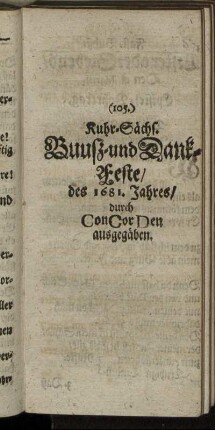 (105.)
Kuhr-Sächs.
Buuß-und Dank-
Feste/
des 1681. Jahres/
durch
ConCorDen
ausgegäben.